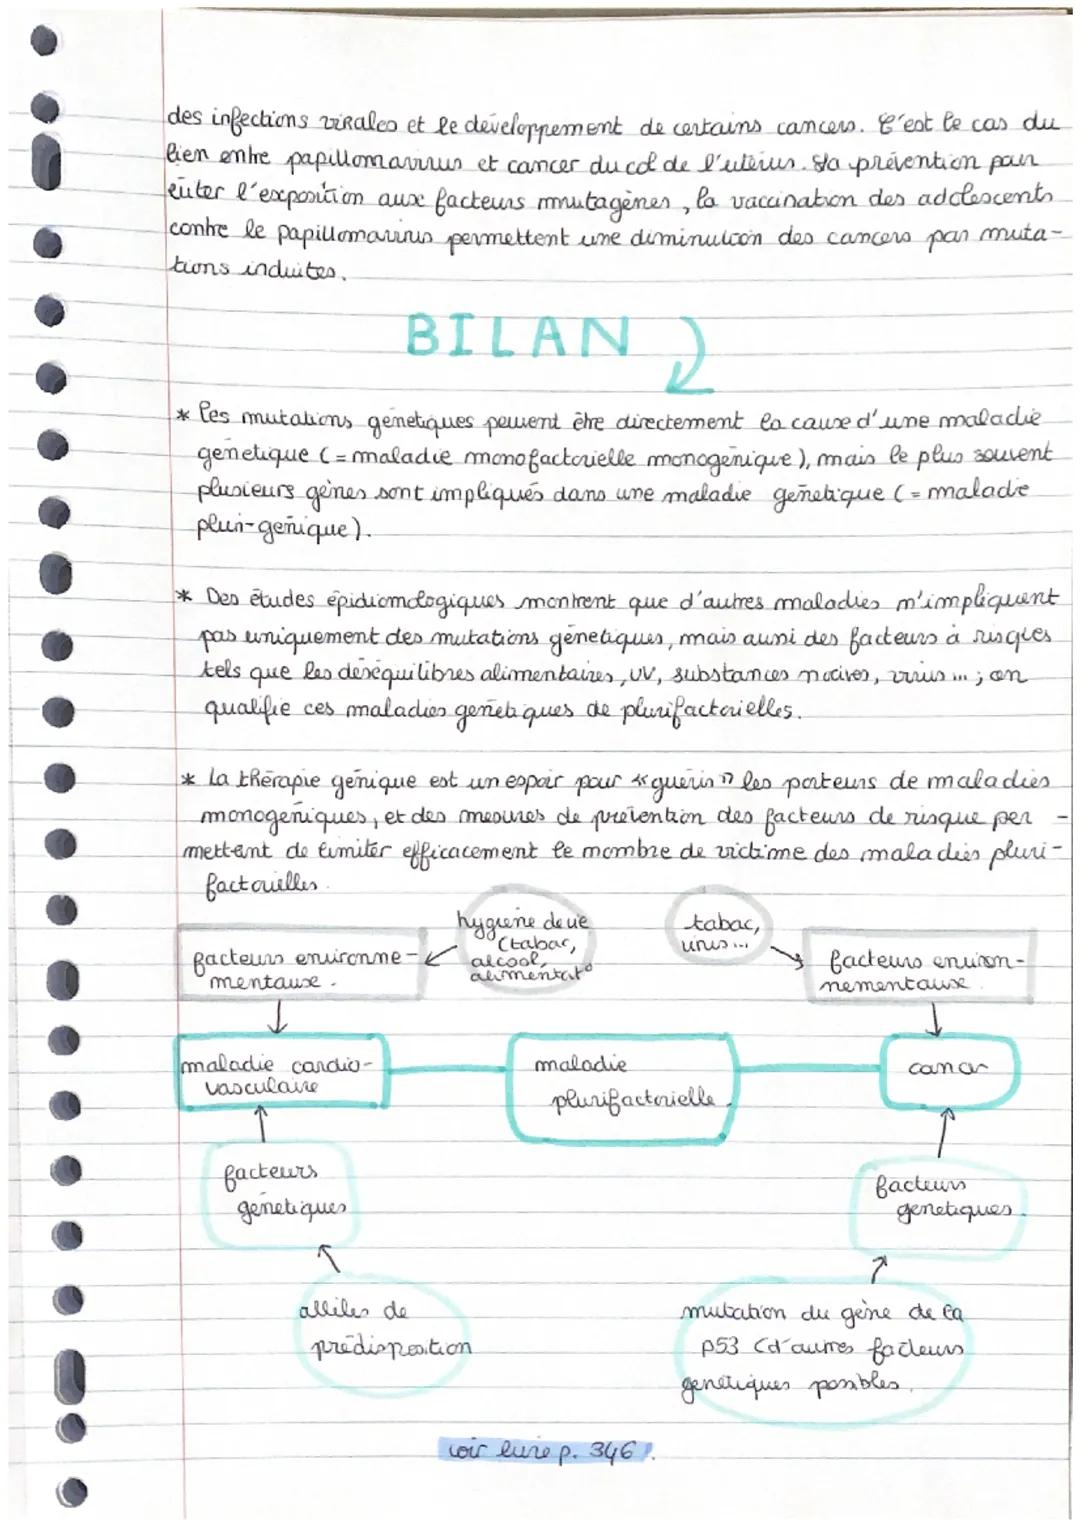 des infections virales et le développement de certains cancers. C'est le cas du
lien entre papillomavirus et cancer du col de l'utérus. La prévention pour
éviter l'exposition aux facteurs mutagènes, la vaccination des adolescents
contre le papillomavirus permettent une diminution des cancers par muta-
tions induites.
BILAN
* Les mutations génétiques peuvent être directement la cause d'une maladie
génétique (= maladie monofactorielle monogénique), mais le plus souvent
plusieurs gènes sont impliqués dans une maladie génétique (= maladie
pluri-génique).
* Des études épidiomologiques montrent que d'autres maladies n'impliquent
pas uniquement des mutations génétiques, mais aussi des facteurs à risques
tels que les déséquilibres alimentaires, UV, substances nocives, virus ... ; on
qualifie ces maladies génétiques de plurifactorielles.
* La thérapie génique est un espoir pour « guérir » les porteurs de maladies
monogéniques, et des mesures de prévention des facteurs de risque per -
mettant de limiter efficacement le nombre de victime des maladies pluri-
factorielles.
hygiène de vie
(tabac,
alcool,
alimentat°
tabac,
virus ...
facteurs environne-
mentaux.
facteurs environ-
nementaux.
maladie cardio-
vasculaire
maladie
plurifactorielle.
cancer
facteurs
génétiques
facteurs
génétiques.
allèles de
prédisposition
mutation du gène de la
p53 (d'autres facteurs
génétiques possibles.
voir livre p. 346 !.